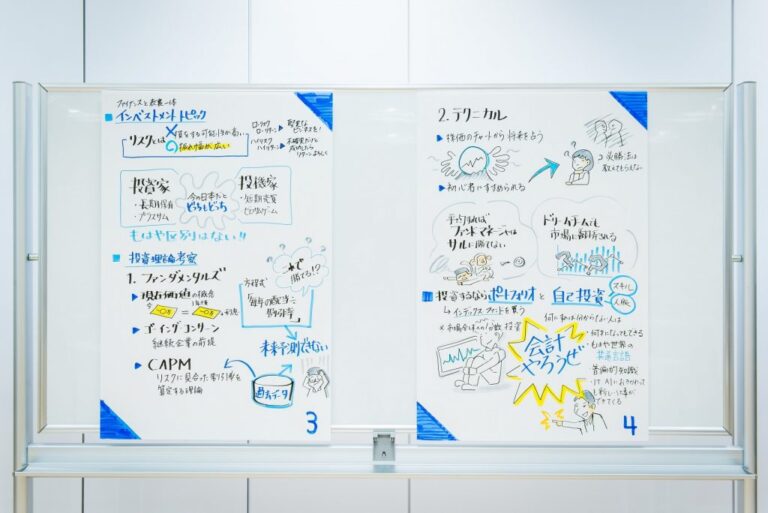 ファイナンスと教養一体
インベストメントトピック
リスクとは
損をする可能性が高い
振れ幅が広い
ローリスク
ローリターン
堅実な
ビジネスを!
ハイリスク
ハイリターン
不確実だけど
成功したら
リターン
投資家
・長期保有
・プラスサム
今の日本だと
どっちもどっち
投機家
・短期売買
・ゼロサムゲーム
もはや区別はない!!
投資理論考察
1. ファンダメンタルズ
現在価値の概念
1年後
・ゴーイングコンサーン
継続企業の前提
・CAPM
リスクに見合った割引率を
算定する理論
これで
勝てる!?
方程式
毎年の配当÷
割引率
未来予測できない
過去データ
3
2. テクニカル
株価のチャートから将来を占う
初心者にすすめられる
必勝法は
教えてもらえない
ファンドマネージャは
サルに勝てない
ドリームチームも
市場に翻弄される
投資するならポートフォリオと自己投資
スキル
人脈
インデックスファンドを買う
何に投資かは分からない人は
会計
やろうぜ
・何才になってもできる
・もはや世界の
共通言語
・普遍的知識
4